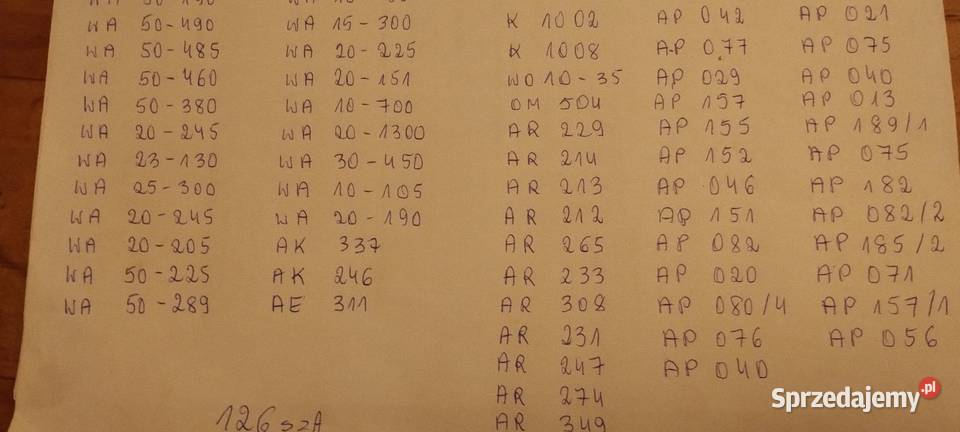 WA 50-490
WA 50-485
WA 50-460
WA 50-380
WA 20-245
WA 23-130
WA 25-300
WA 20-245
WA 20-205
WA 50-225
WA 50-289
WA 15-300
WA 20-225
WA 20-151
WA 10-700
WA 20-1300
WA 30-450
WA 10-105
WA 20-190
AK 337
AK 246
AE 311
126 szt
K 1002
K 1008
WO 10-35
OM 504
AR 229
AR 214
AR 213
AR 212
AR 265
AR 233
AR 308
AR 231
AR 247
AR 274
AR 349
AP 042
AP 077
AP 029
AP 157
AP 155
AP 152
AP 046
AP 151
AP 082
AP 020
AP 080/4
AP 076
AP 040
AP 021
AP 075
AP 040
AP 013
AP 189/1
AP 075
AP 182
AP 082/2
AP 185/2
AP 071
AP 157/1
AP 056
Sprzedajemy.pl